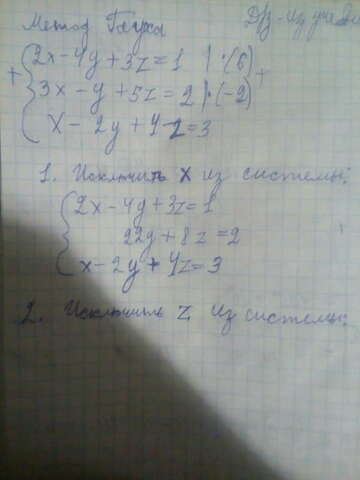 Метод Гаусса
Д/з - из учебни
2x - 4y + 3z = 1 | · (6) +
+ 3x - y + 5z = 2 | · (-2)
x - 2y + 4z = 3
1. Исключить x из системы:
2x - 4y + 3z = 1
22y + 8z = 2
x - 2y + 4z = 3
2. Исключить z из системы: